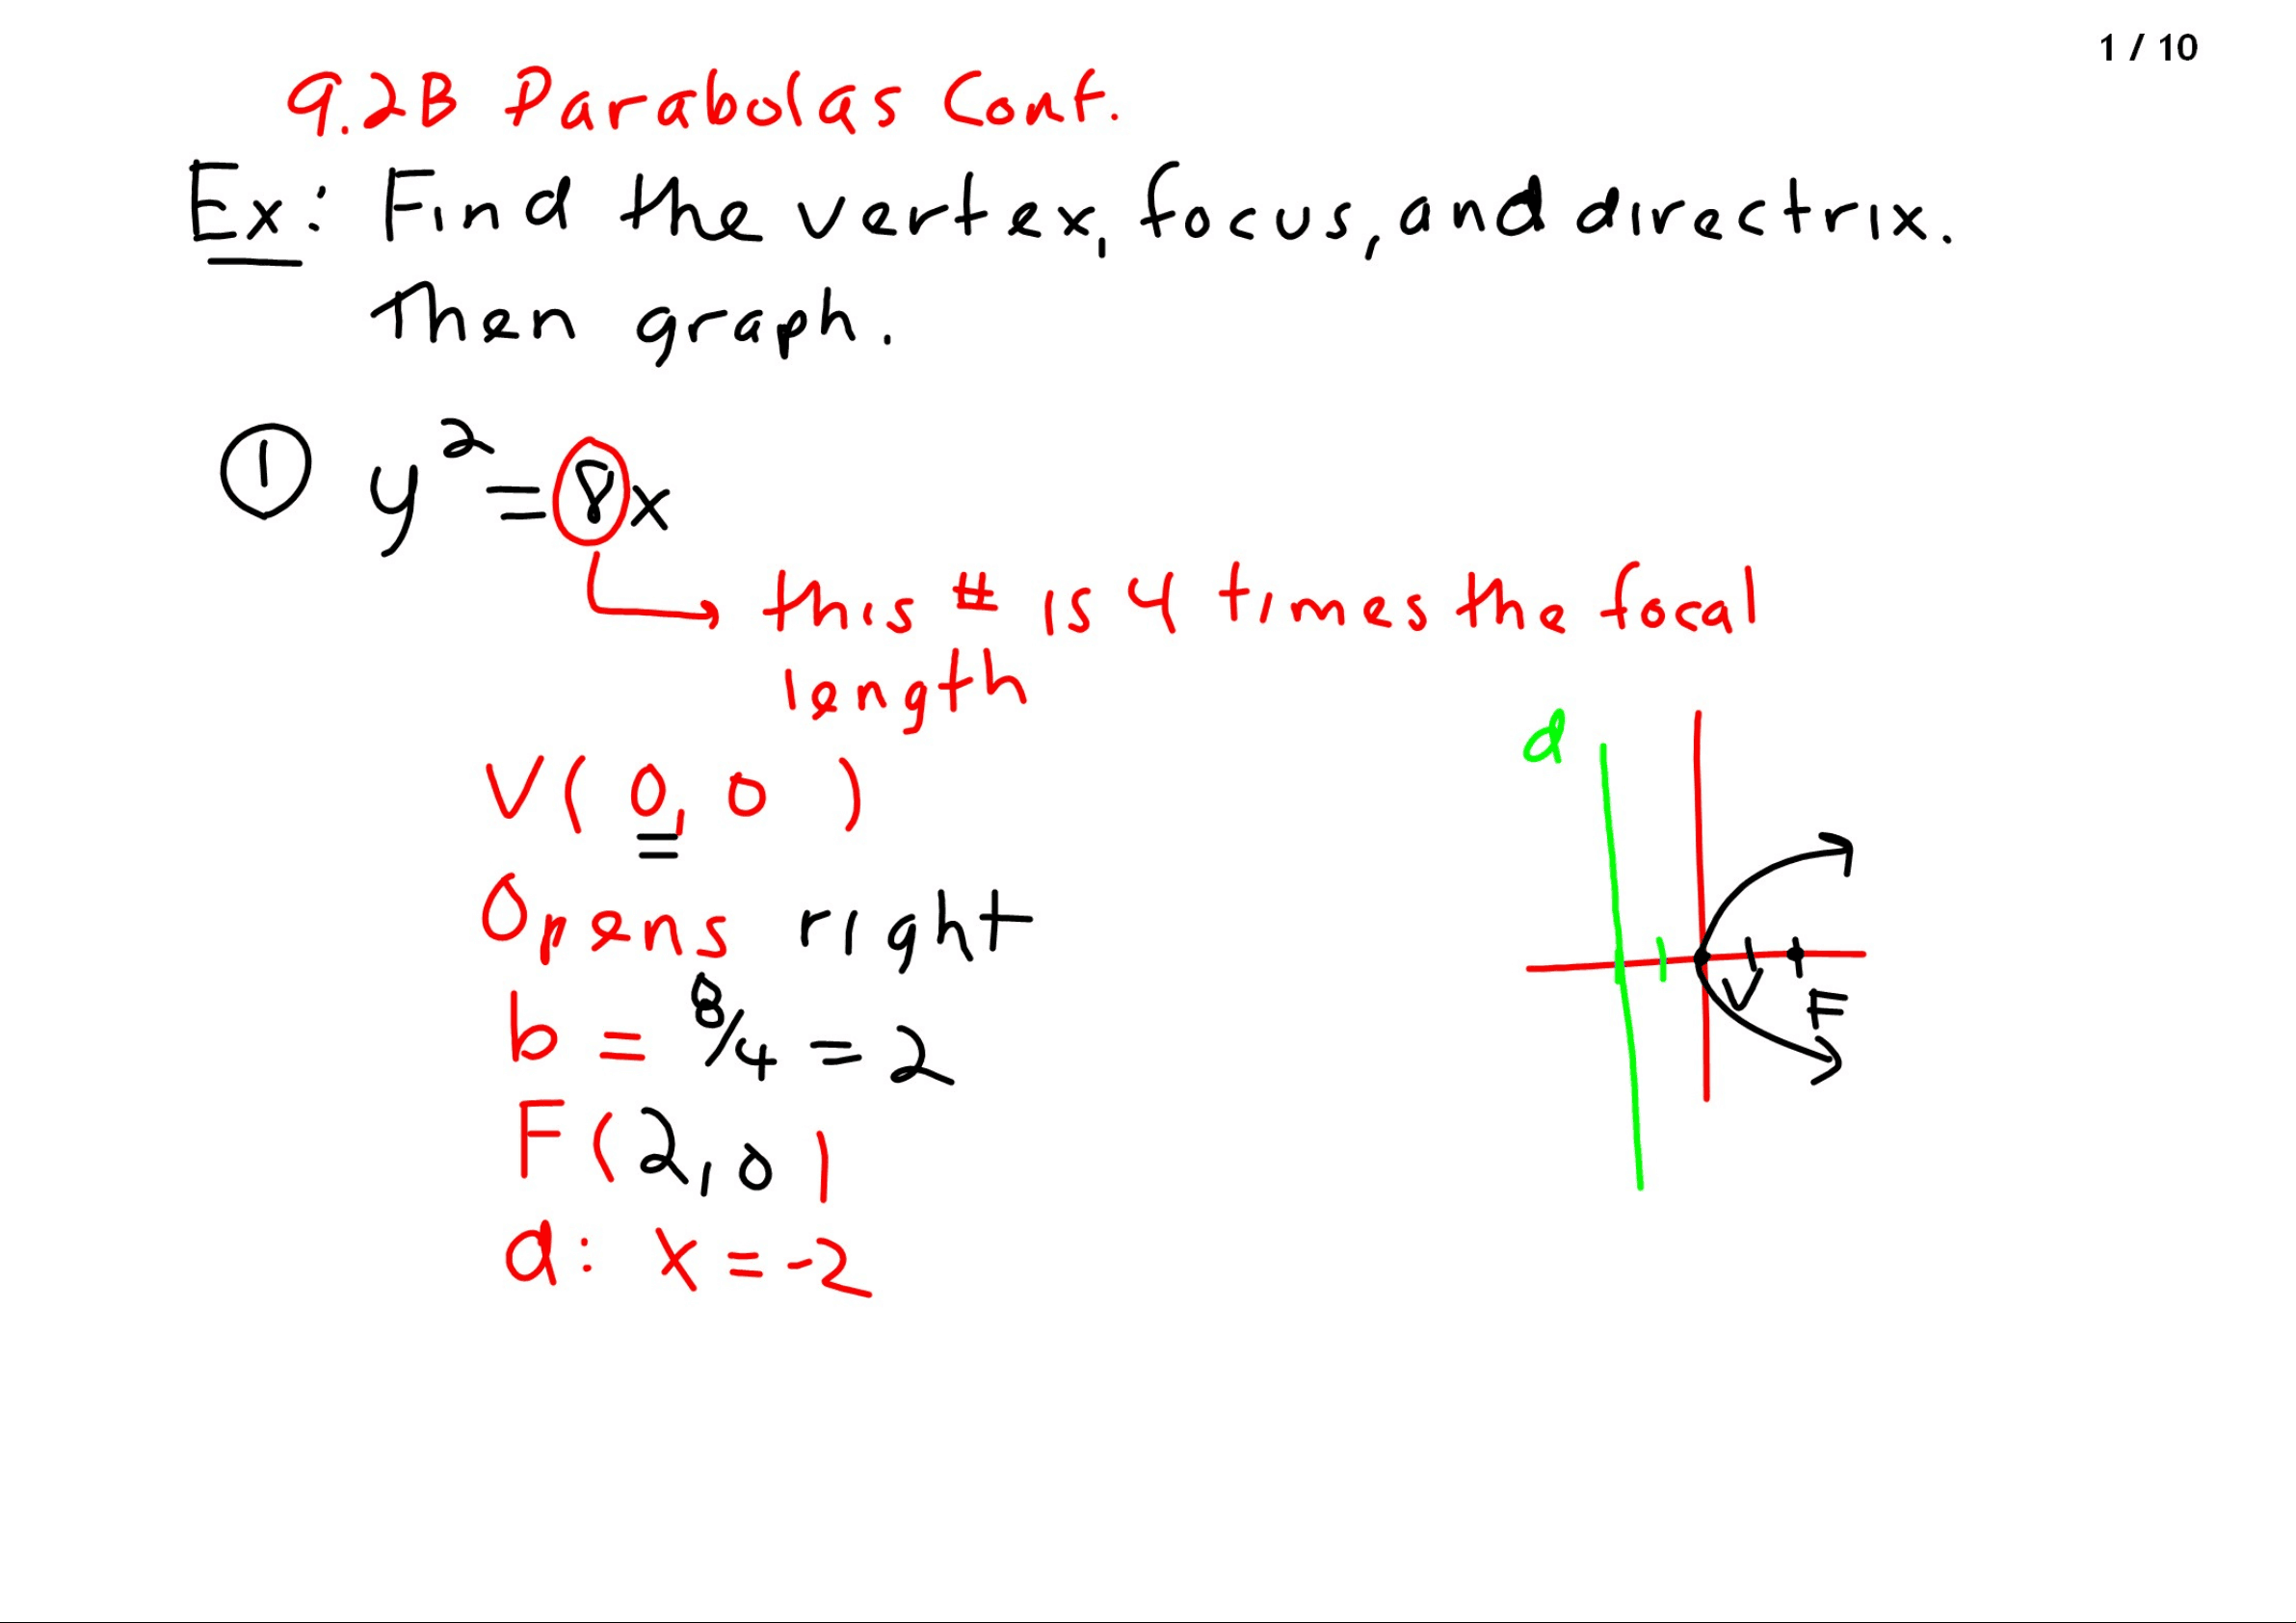 1 / 10
9.2B Parabolas Cont.
Ex: Find the vertex, focus, and directrix.
Then graph.
① y² = 8x
this # is 4 times the focal
length
V( 0, 0 )
Opens right
b = 8/4 = 2
F(2,0)
d: x = -2
d
V
F